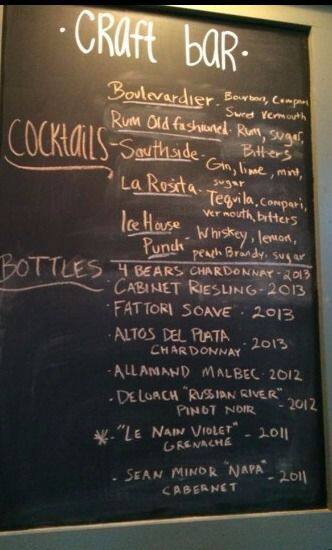 · CRAft bAR ·
Boulevardier. Bourbon, Campari
Sweet Vermouth
Rum Old fashioned. Rum, sugar,
Bitters
COCKTAILS - Southside - Gin, lime, mint,
sugar
La Rosita - Tequila, campari,
vermouth, bitters
Ice House
Punch - Whiskey, lemon,
peach Brandy, sugar
BOTTLES 4 BEARS CHARDONNAY - 2013
· CABINET RIESLING - 2013
· FATTORI SOAVE · 2013
· ALTOS DEL PLATA
CHARDONNAY · 2013
· ALLAMAND MALBEC · 2012
· DELOACH "RUSSIAN RIVER"
PINOT NOIR · 2012
* - "LE NAIN VIOLET"
GRENACHE - 2011
· SEAN MINOR "NAPA"
CABERNET - 2011